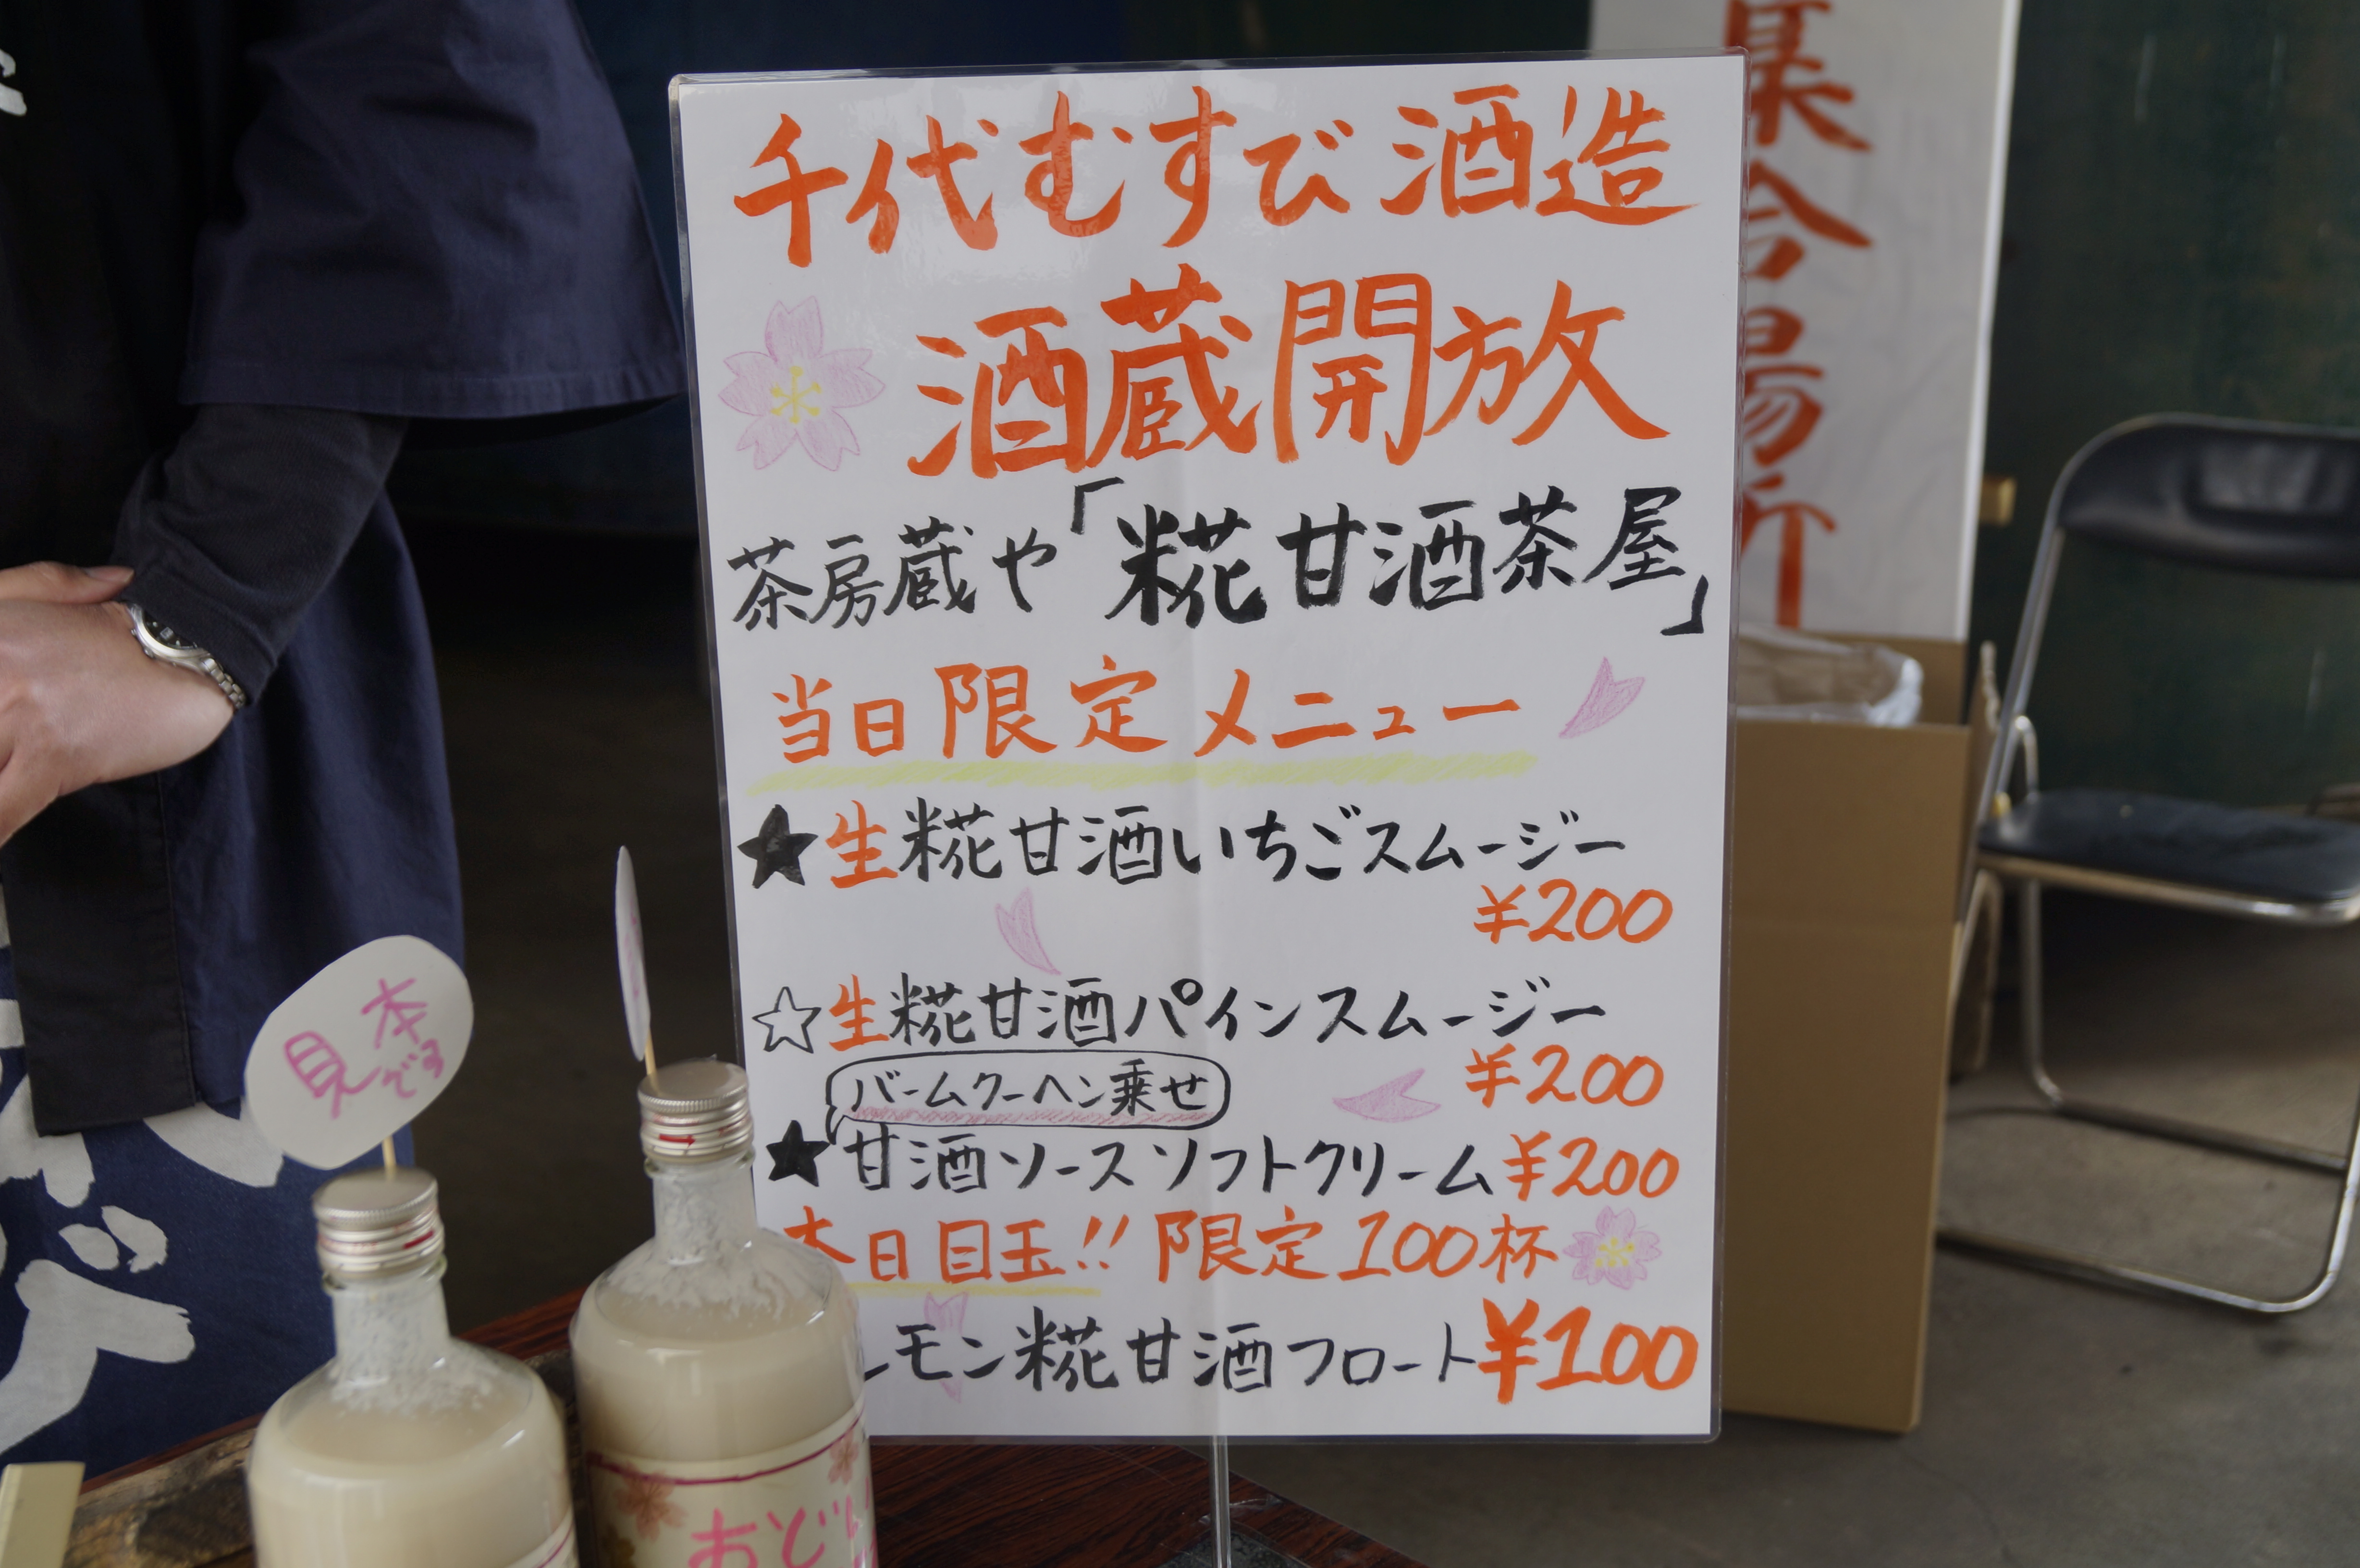 千代むすび酒造
酒蔵開放
茶房蔵や「糀甘酒茶屋」
当日限定メニュー
★生糀甘酒いちごスムージー
¥200
☆生糀甘酒パインスムージー
¥200
バームクーヘン乗せ
★甘酒ソースソフトクリーム¥200
本日目玉!! 限定100杯
レモン糀甘酒フロート¥100
集合場所
見本
です
おと